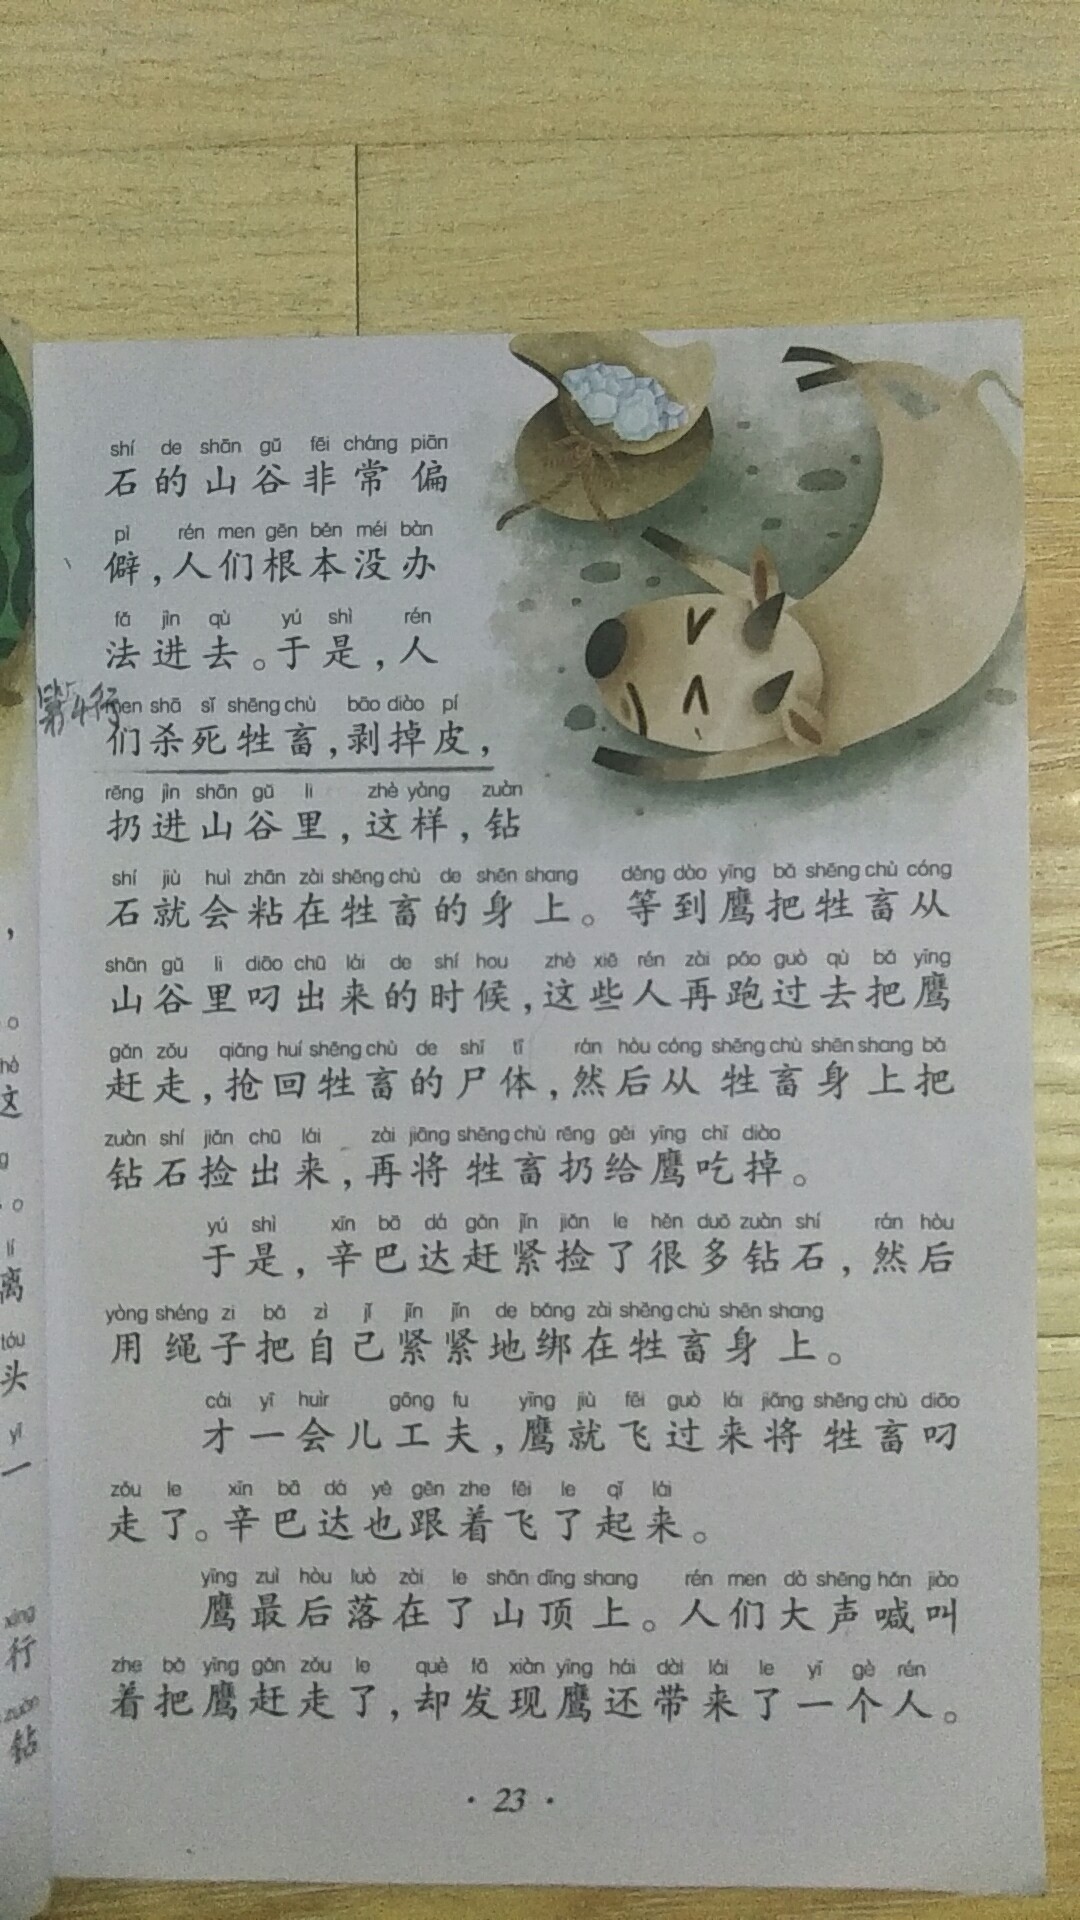 shí de shān gǔ fēi cháng piān
石的山谷非常偏
pì rén men gēn běn méi bàn
僻，人们根本没办
fǎ jìn qù yú shì rén
法进去。于是，人
第4行
men shā sǐ shēng chù bāo diào pí
们杀死牲畜，剥掉皮，
rēng jìn shān gǔ li zhè yàng zuàn
扔进山谷里，这样，钻
shí jiù huì zhān zài shēng chù de shēn shang děng dào yīng bǎ shēng chù cóng
石就会粘在牲畜的身上。等到鹰把牲畜从
shān gǔ li diāo chū lái de shí hou zhè xiē rén zài pǎo guò qù bǎ yīng
山谷里叼出来的时候，这些人再跑过去把鹰
gǎn zǒu qiǎng huí shēng chù de shī tǐ rán hòu cóng shēng chù shēn shang bǎ
赶走，抢回牲畜的尸体，然后从牲畜身上把
zuàn shí jiǎn chū lái zài jiāng shēng chù rēng gěi yīng chī diào
钻石捡出来，再将牲畜扔给鹰吃掉。
yú shì xīn bā dá gǎn jǐn jiǎn le hěn duō zuàn shí rán hòu
于是，辛巴达赶紧捡了很多钻石，然后
yòng shéng zi bǎ zì jǐ jǐn jǐn de bǎng zài shēng chù shēn shang
用绳子把自己紧紧地绑在牲畜身上。
cái yī huìr gōng fu yīng jiù fēi guò lái jiāng shēng chù diāo
才一会儿工夫，鹰就飞过来将牲畜叼
zǒu le xīn bā dá yě gēn zhe fēi le qǐ lái
走了。辛巴达也跟着飞了起来。
yīng zuì hòu luò zài le shān dǐng shang rén men dà shēng hǎn jiào
鹰最后落在了山顶上。人们大声喊叫
zhe bǎ yīng gǎn zǒu le què fā xiàn yīng hái dài lái le yī gè rén
着把鹰赶走了，却发现鹰还带来了一个人。
· 23 ·
，
。
这
。
lí
离
tóu
头
yī
一
xíng
行
zuàn
钻